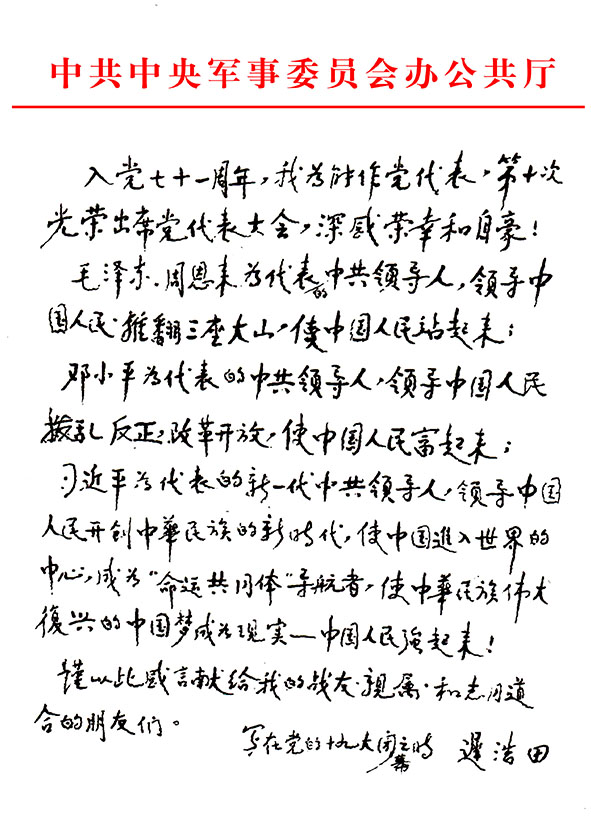 中共中央军事委员会办公共厅
入党七十一周年，我为能作党代表，第十次
光荣出席党代表大会，深感荣幸和自豪！
毛泽东、周恩来为代表的中共领导人，领导中
国人民推翻三座大山，使中国人民站起来；
邓小平为代表的中共领导人，领导中国人民
拨乱反正，改革开放，使中国人民富起来；
习近平为代表的新一代中共领导人，领导中国
人民开创中華民族的新時代，使中国進入世界的
中心，成为“命运共同体”导航者，使中華民族伟大
復兴的中国梦成为现实—中国人民強起来！
謹以此感言献给我的战友、親属、和志同道
合的朋友们。
写在党的十九大闭幕之時 遲浩田